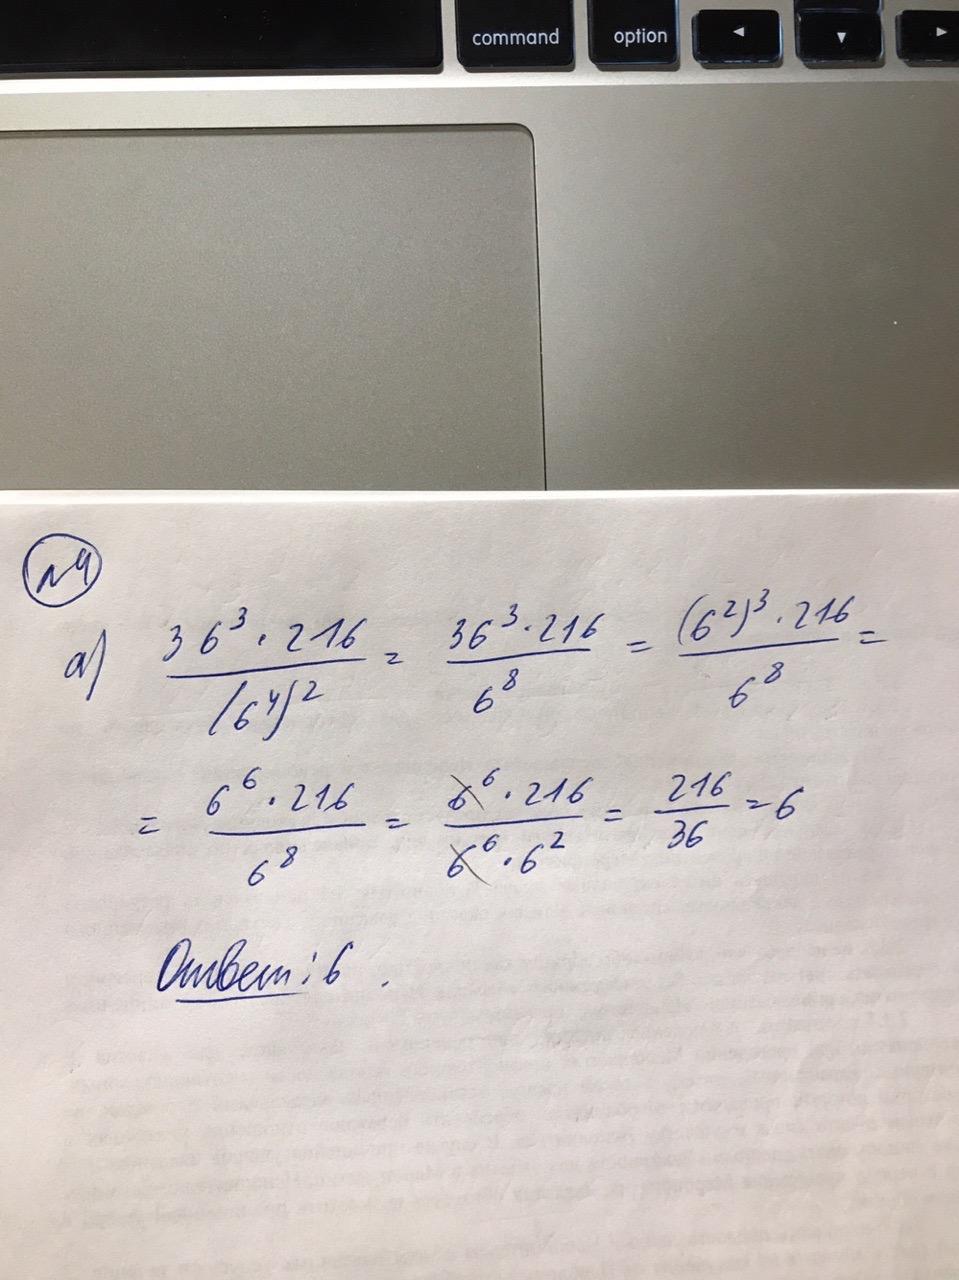 command option ◄ ▼ ►
№4
а) 36³·216/(6⁴)² = 36³·216/6⁸ = (6²)³·216/6⁸ =
= 6⁶·216/6⁸ = 6⁶·216/6⁶·6² = 216/36 = 6
Ответ: 6.